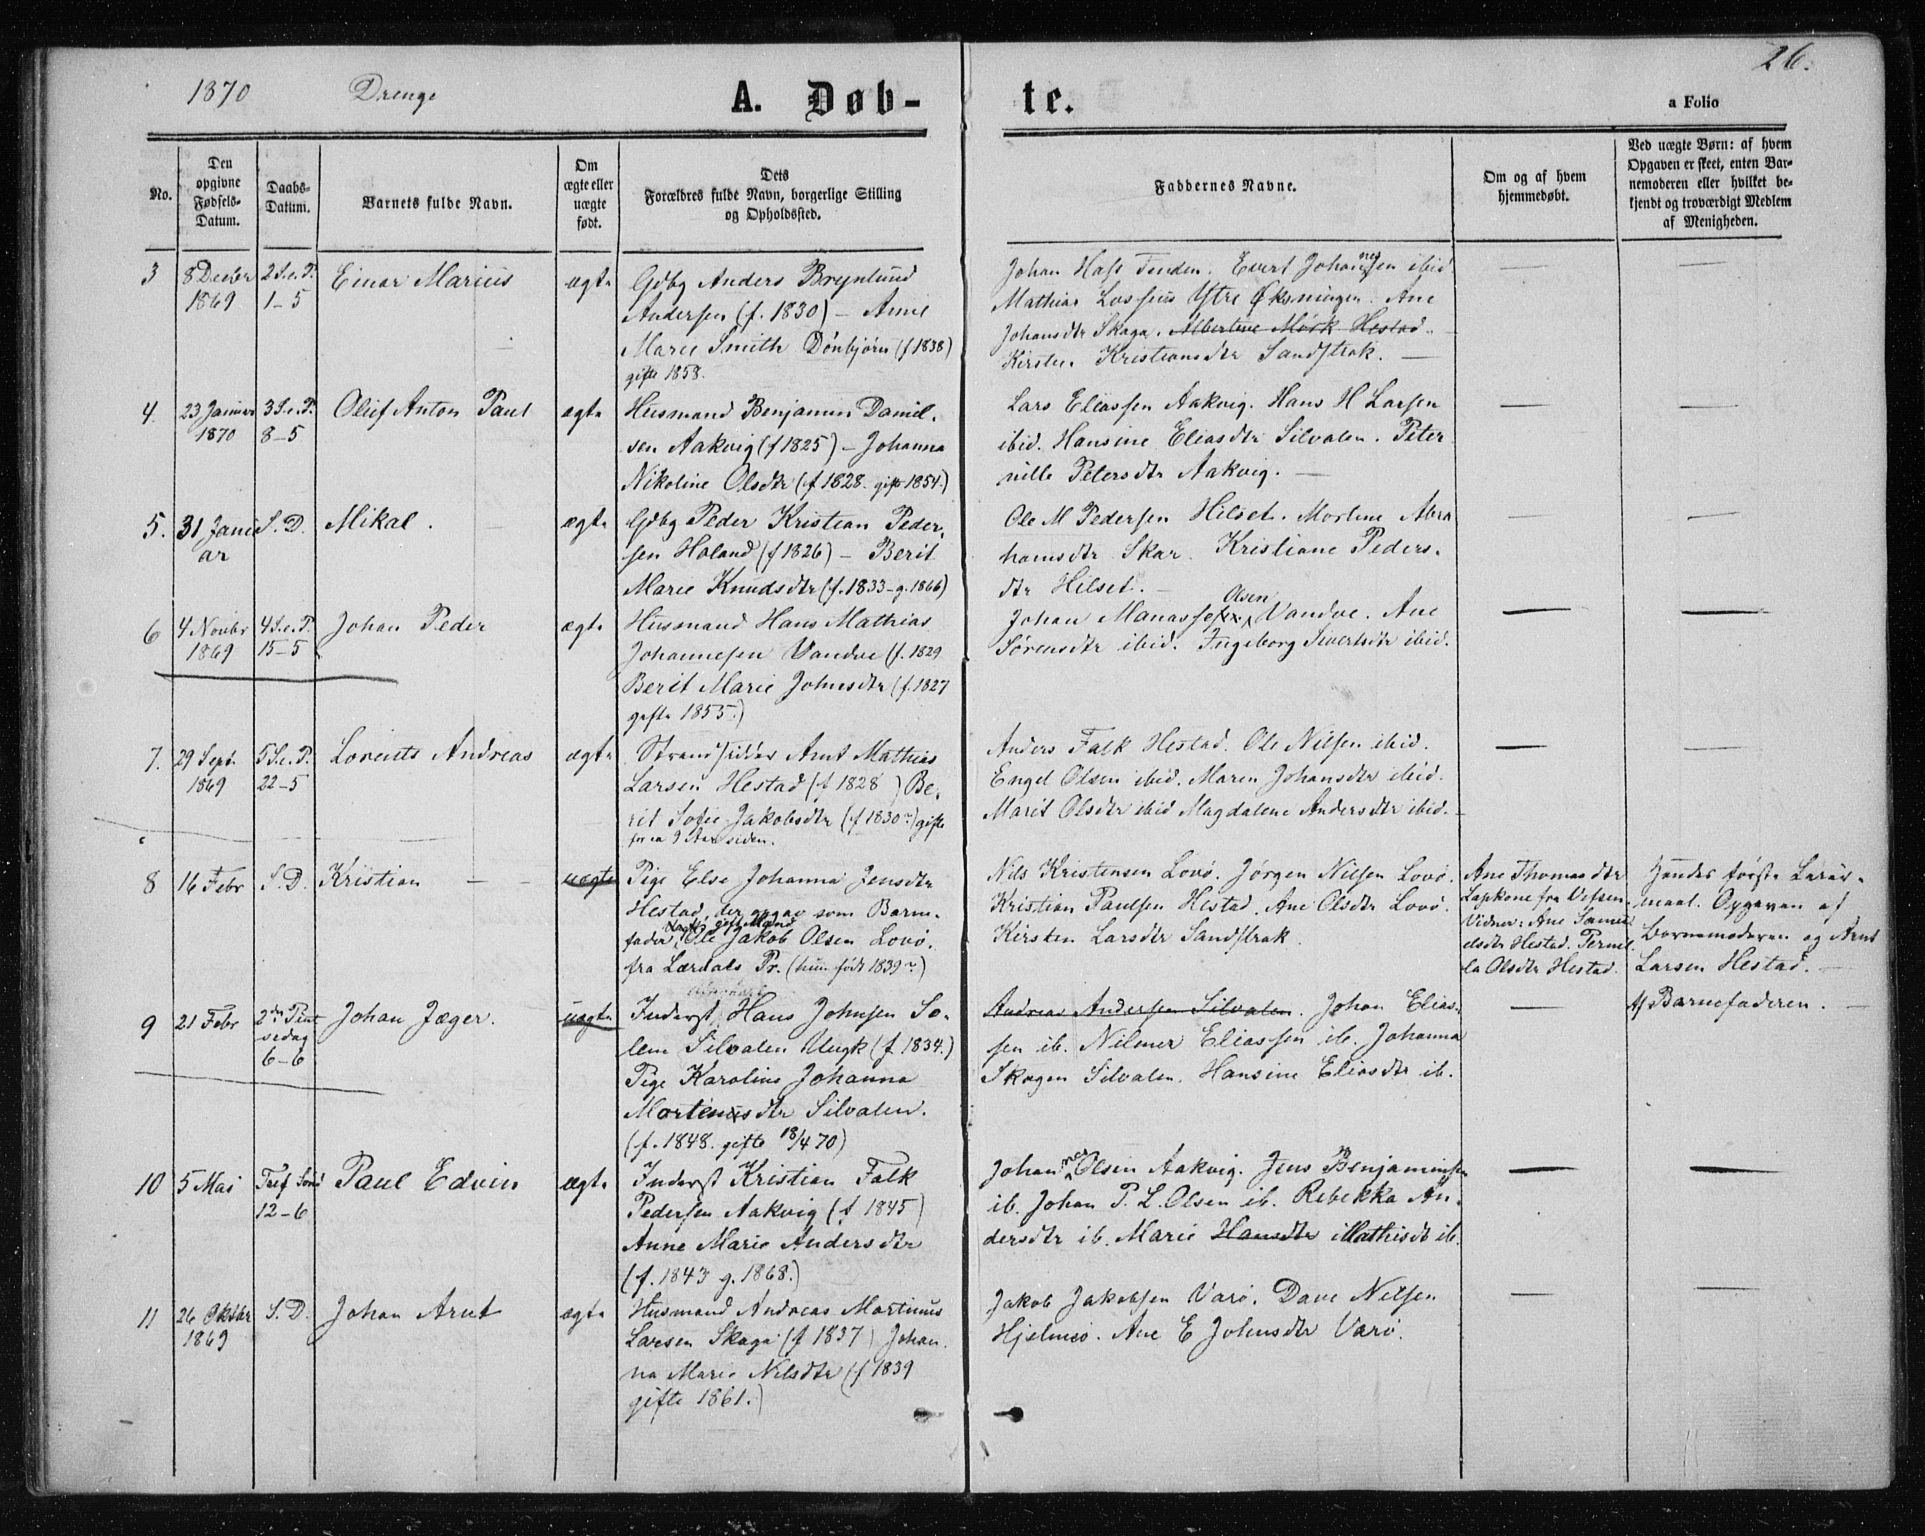 1870 Drenge A. Døb- te. 26.
a Folio
No.
Den opgivne Fødsels-Datum.
Daabs-Datum.
Barnets fulde Navn.
Om ægte eller uægte født.
Dets Forældres fulde Navn, borgerlige Stilling og Opholdssted.
Faddernes Navne.
Om og af hvem hjemmedøbt.
Ved uægte Børn: af hvem Opgaven er skeet, enten Barnemoderen eller hvilket bekjendt og troværdigt Medlem af Menigheden.
3 8 Decbr 1869
2 S. e. P. 1-5
Einar Marius
ægte
Gdbg Anders Brynlund
Andersen (f. 1830) – Anne
Marie Smith Dønbjørn (f 1838)
gifte 1858.
Johan Hass Tenden. Evert Johannesen ibid
Mathias Lossius Ytre Øksningen. Ane
Johansdtr Skaga. Albertine Mørk Hestad.
Kirsten Kristiansdtr Sandstrak. —
4. 23 Januar 1870
3 S. e. P. 8-5
Oluf Anton Paul
ægte
Husmand Benjamin Daniel-
sen Aakvig (f 1825) – Johanna
Nikoline Olsdtr (f 1828. gifte 1854.)
Lars Eliassen Aakvig. Hans H Larsen
ibid. Hansine Eliasdtr Silvalen. Peter
nille Petersdtr Aakvig. —
5. 31 Janu ar
S. D.
Mikal.
ægte
Gdbg Peder Kristian Peder-
sen Holand (f 1826) – Berit
Marie Knudsdtr (f. 1833 – g. 1866)
Ole M Pedersen Hilset. Mortine Abra
hamsdtr Skar. Kristiane Peders-
dtr Hilset. —
6 4 Novbr 1869
4 S. e. P. 15-5
Johan Peder
ægte
Husmand Hans Mathias
Johannesen Vandve (f. 1829
Berit Marie Johnsdtr (f. 1827
gifte 1855.)
Olsen
Johan Manasse Vandve. Ane
Sørensdtr ibid. Ingeborg Sivertsdtr ibid.
7. 29 Sept. 1869
5 S. e. P. 22-5
Lorents Andreas
ægte
Strandsidder Arnt Mathias
Larsen Hestad (f 1828) Be-
rit Sofie Jakobsdtr (f 1830) gifte
for ca 9 Aar siden.
Anders Falk Hestad. Ole Nilsen ibid.
Engel Olsen ibid. Maren Johansdtr ibid.
Marit Olsdtr ibid Magdalene Andersdtr ibid.
8 16 Febr
S. D.
Kristian — —
uægte
Pige Else Johanna Jensdtr
Hestad, der opgav som Barne-
gift Mand
fader, Ole Jakob Olsen Lovø.
fra Lærdals Pr. (hun født 1839)
Nils Kristensen Lovø. Jørgen Nilsen Lovø.
Kristian Paulsen Hestad. Ane Olsdtr Lovø.
Kirsten Larsdtr Sandstrak.
Ane Thomasdtr
Lapkone fra Vefsen.
Vidner: Ane Samu
elsdtr Hestad. Pernil
la Olsdtr Hestad.
Hendes første Leier-
maal. Opgaven af
Barnemoderen og Arnt
Larsen Hestad. —
9 21 Febr
2den Pint sedag 6-6
Johan Jæger.
uægte
Inderst Hans Johnsen So-
lem Silvalen Ungk (f 1834.)
Pige Karoline Johanna
Mortensdtr Silvalen.
(f. 1848. gifte 18/4 70)
Andreas Andersen Silvalen. Johan Elias-
sen ib. Nilmer Eliassen ib. Johanna
Skogen Silvalen. Hansine Eliasdtr ib.
Af Barnefaderen. —
10 5 Mai
Tref Sønd 12-6
Paul Edvin
ægte
Inderst Kristian Falk
Pedersen Aakvig (f 1845)
Anne Marie Andersdtr
(f. 1843 g. 1868.)
Johannes Olsen Aakvig. Jens Benjaminsen
ib. Johan P. L. Olsen ib. Rebekka An-
dersdtr ib. Marie Hansdtr Mathisdt ib.
11 26 Oktbr 1869
S. D.
Johan Arnt
ægte
Husmand Andreas Martinus
Larsen Skaga (f 1837) Johan
na Marie Nilsdtr (f 1839
gifte 1861.)
Jakob Jakobsen Varø. Dane Nilsen
Hjelmsø. Ane E Johnsdtr Varø.